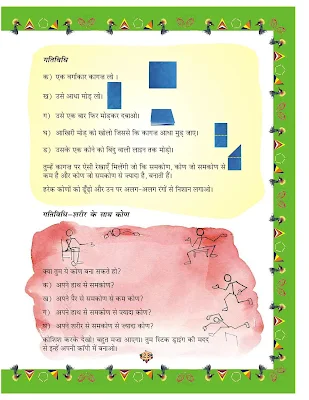 गतिविधि
क) एक वर्गाकार कागज लो।
ख) उसे आधा मोड़ लो।
ग) उसे एक बार फिर मोड़कर दबाओ।
घ) आखिरी मोड़ को खोलो जिससे कि कागज आधा मुड़ जाए।
ङ) उसके एक कोने को बिंदु वाली लाइन तक मोड़ो।
तुम्हें कागज पर ऐसी रेखाएँ मिलेंगी जो कि समकोण, कोण जो समकोण से
कम है और कोण जो समकोण से ज्यादा है, बनाती हैं।
हरेक कोणों को ढूँढो और उन पर अलग-अलग रंगों से निशान लगाओ।
गतिविधि-शरीर के साथ कोण
क्या तुम ये कोण बना सकते हो?
क) अपने हाथ से समकोण?
ख) अपने पैर से समकोण से कम कोण?
ग) अपने हाथ से समकोण से ज्यादा कोण?
घ) अपने शरीर से समकोण से ज्यादा कोण?
कोशिश करके देखो! बहुत मजा आएगा। तुम स्टिक ड्राइंग की मदद
से इन्हें अपनी कॉपी में बनाओ।